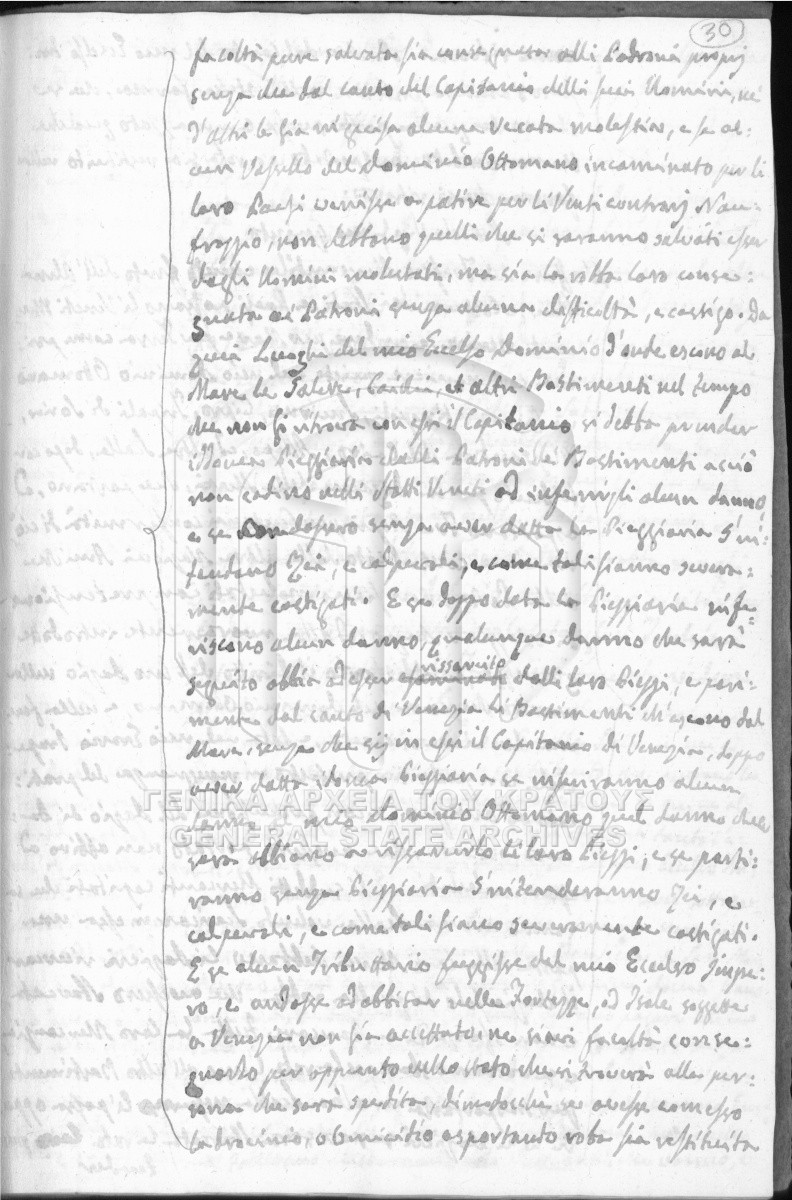 30
facoltà pure salvata sia consegnata alli Padroni proprij
senza che dal canto del Capitanio delli suoi Uomini, nè
d'altri le sia in guisa alcuna recata molestia, e se al:
cun Vassello del Dominio Ottomano incaminato per li
loro Paesi venisse a patire per li Venti contrarij Nau:
fraggio, non debbano quelli che si saranno salvati esser
dagli Uomini molestati, ma sia la robba loro conse:
gnata ai Patroni senza alcuna difficoltà, e castigo. Da
quei Luoghi del mio Eccelso Dominio d'onde escono al
Mare le Galere, et altri Bastimenti nel tempo
che non si ritrova con essi il Capitanio si debba prender
idonea Pieggiaria dalli Patroni de Bastimenti acciò
non vadino nelli Statti Veneti ad inferirgli alcun danno,
e se andassero senza aver datta la Pieggiaria s'in:
tendano Rei, e colpevoli, e come tali sianno severa:
mente castigati. E se doppo data la Pieggiaria infe:
riscono alcun danno, qualunque danno che sarà
seguito abbia ad esser rissarcito dalli loro Pieggi, e pari:
mente dal canto di Venezia li Bastimenti ch'escono dal
Mare, senza che sij in essi il Capitanio di Venezia, doppo
aver datta idonea Pieggiaria se inferiranno alcun
danno mio Dominio Ottomano quel danno che
sarà abbiano a rissarcirlo li loro Pieggi, e se parti:
ranno senza Pieggiaria s'intenderanno Rei, e
colpevoli, e come tali siano severamente castigati.
E se alcun Tributtario fuggisse dal mio Eccelso Impe:
ro, e andasse ad abbitar nelle Fortezze, ad Isole soggette
a Venezia non sia accettato, ne siavi facoltà conse:
gnarlo per appunto nello stato che si troverà alla per:
sona che sarà spedita, dimodocchè se avesse comesso
ladrocinio, o omicidio asportando roba sia restituita
ΓΕΝΙΚΑ ΑΡΧΕΙΑ ΤΟΥ ΚΡΑΤΟΥΣ
GENERAL STATE ARCHIVES